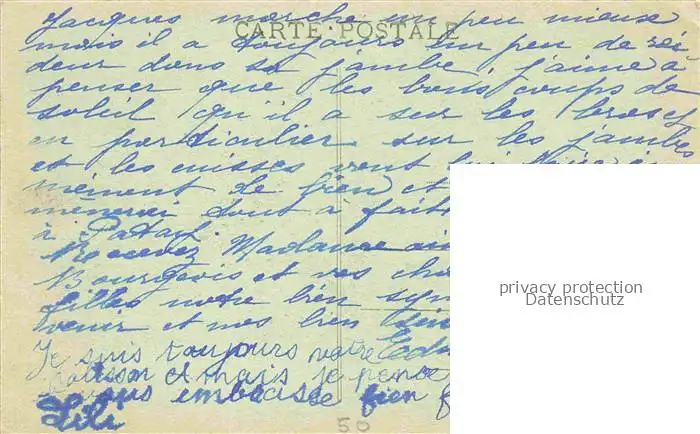 Jacques marche un peu mieux
CARTE POSTALE
mais il a toujours un peu de rai
deur dans sa jambe, j'aime à
penser que les bons coups de
soleil qu'il a sur les bras
en particulier sur les jambes
et les cuisses vont lui faire
mément de bien et
mènerai tout à fait
à
Recevez Madame ain
Bourgeois et vos ch
filles notre bien sym
venir et nos bien
Je suis toujours votre
mais je pence
vous embrasse bien f
Lili
50
privacy protection
Datenschutz